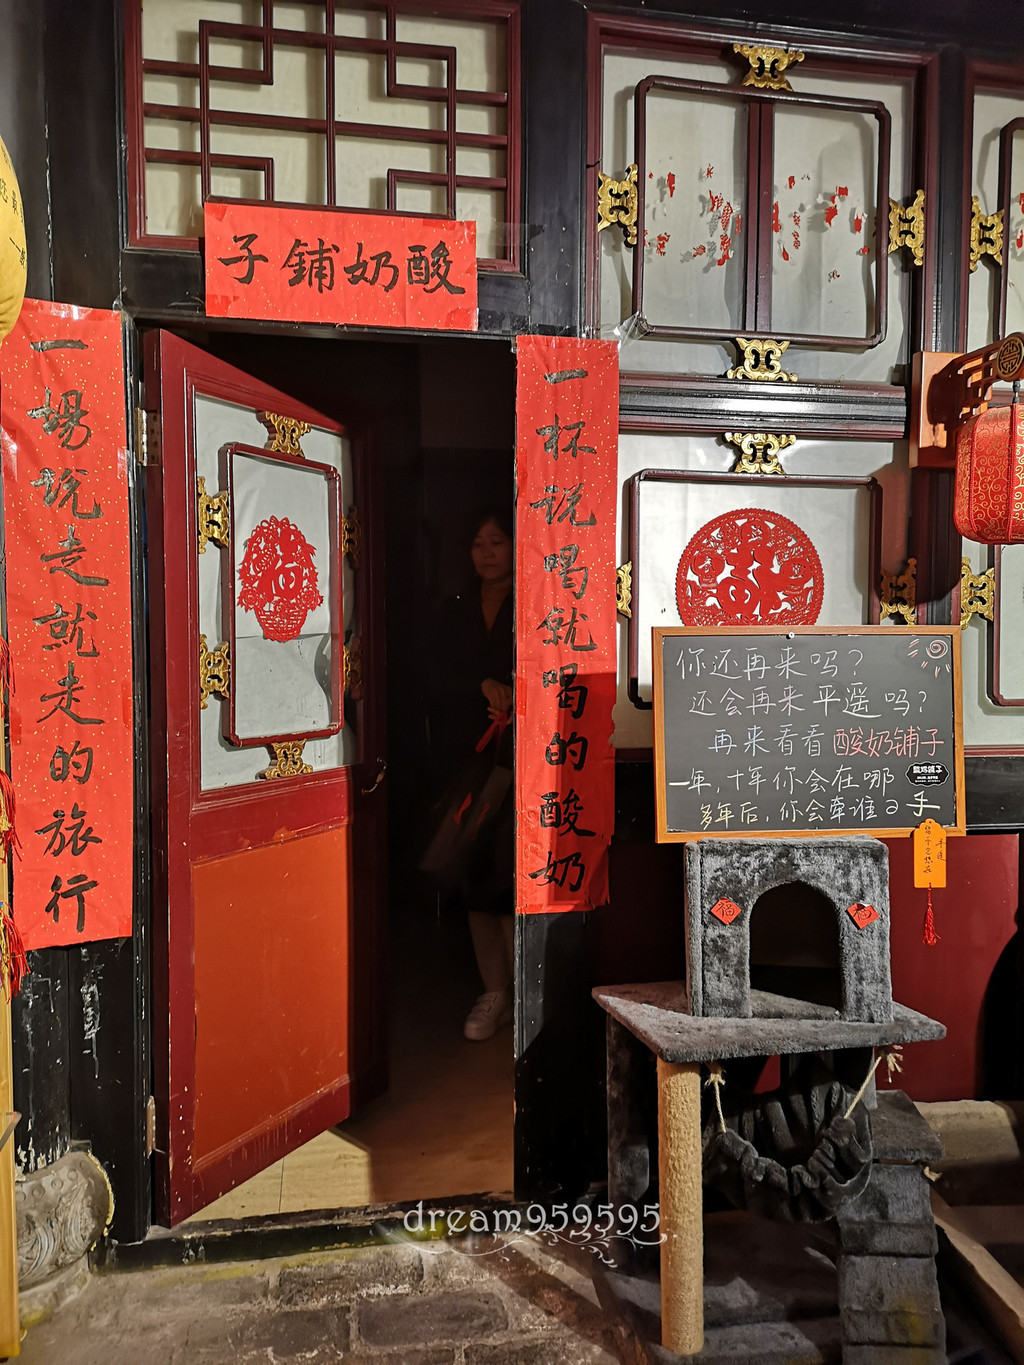 酸奶铺子
一杯说喝就喝的酸奶
一场说走就走的旅行
福
你还再来吗？
还会再来平遥吗？
再来看看酸奶铺子
一年，十年你会在哪
多年后，你会牵谁的手
福
福
dream959595